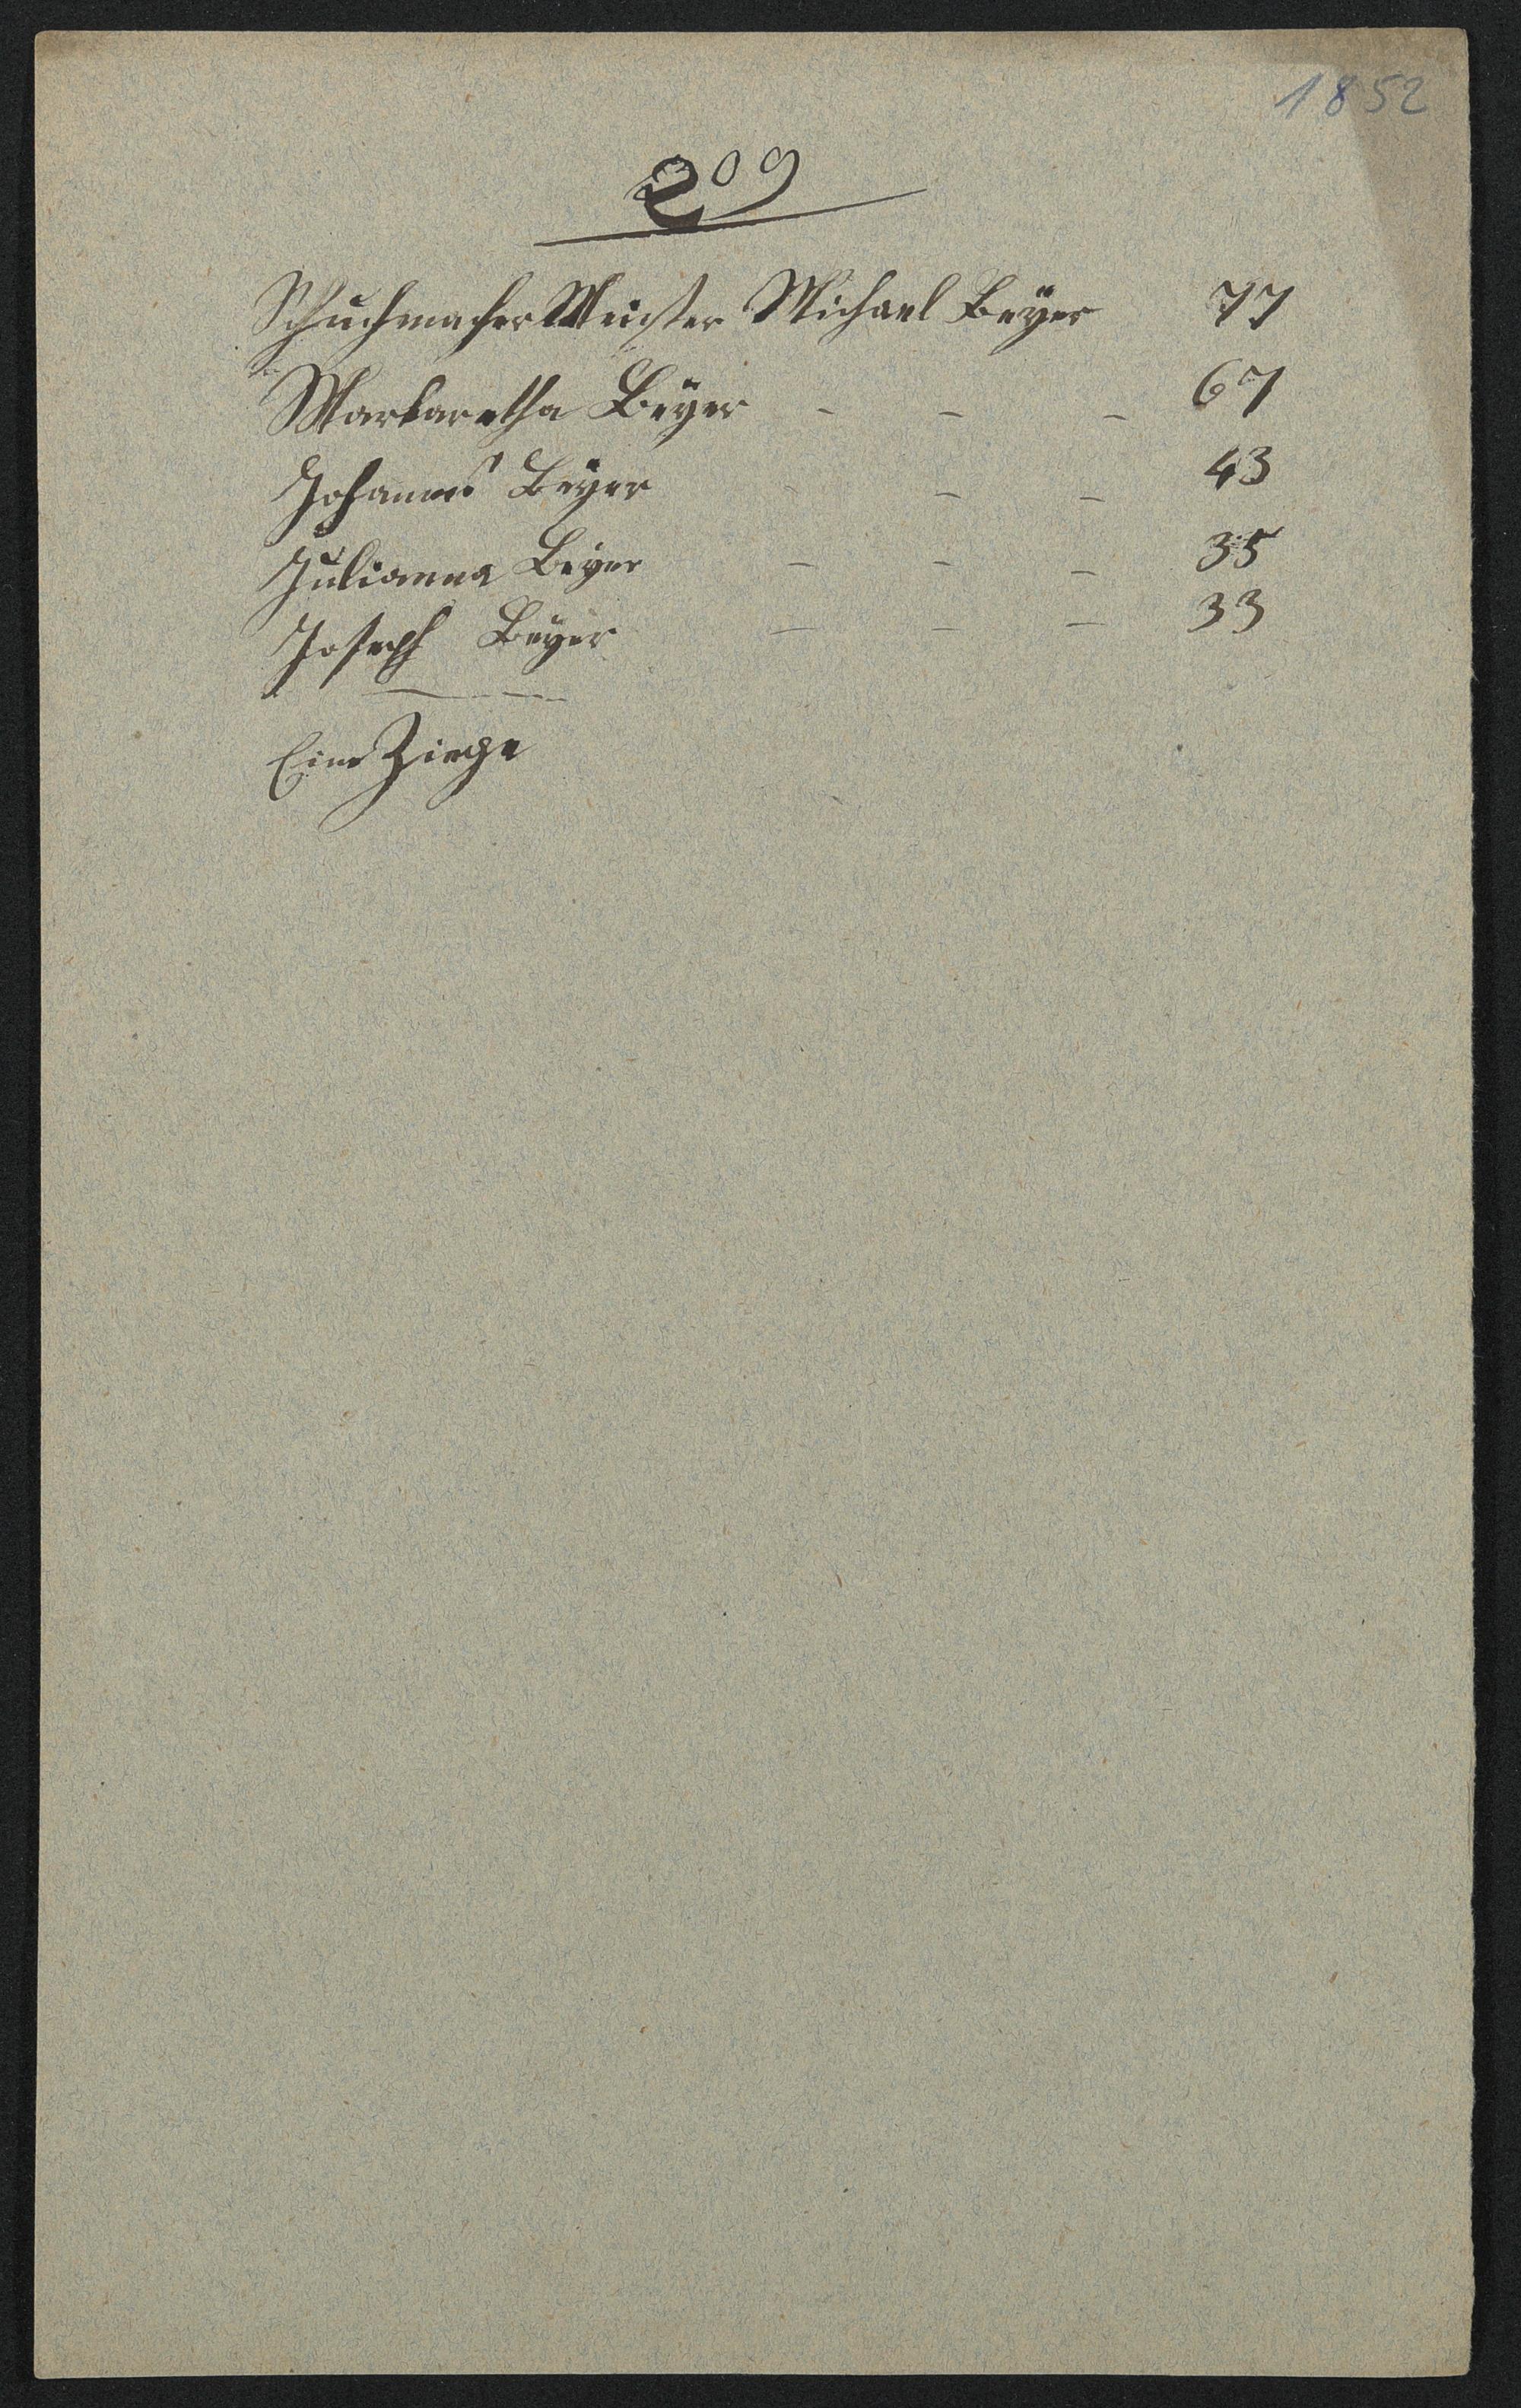 1852
209
Schuchmacher Meister Michael Beÿer 77
Markaretha Beÿer - - - 67
Johannes Beÿer - - - 43
Julianna Beÿer - - - 35
Joseph Beÿer - - - 33
Eine Ziege